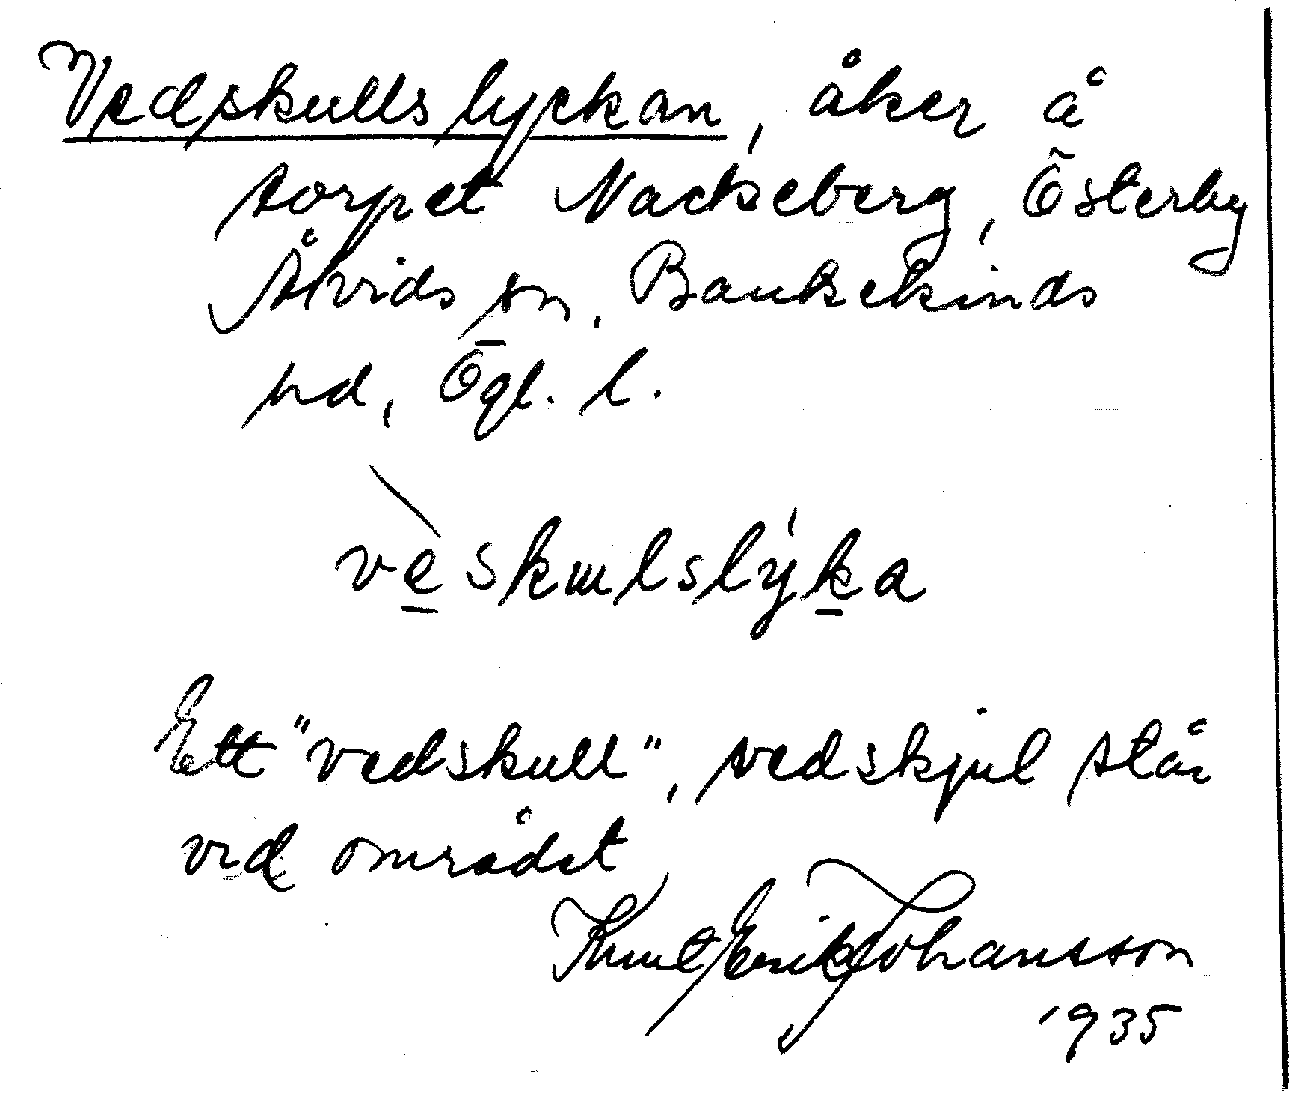 Vedskullslyckan, åker å
torpet Nackeberg, Österby
Åtvids sn, Bankekinds
hd, Ögl. l.
vèskulslýka
Ett "vedskull", vedskjul står
vid området
Knut Erik Johansson
1935